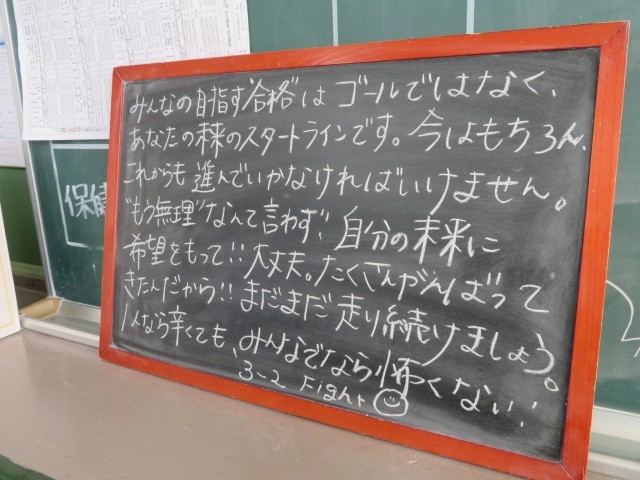 みんなの目指す"合格"は ゴールではなく、
あなたの未来のスタートラインです。今はもちろん、
これからも 進んでいかなければいけません。
"もう無理"なんて言わず、自分の未来に
希望をもって!! 大丈夫。たくさんがんばって
きたんだから!! まだまだ 走り続けましょう。
1人なら辛くても、みんなでなら怖くない!
3-2 Fight
保健